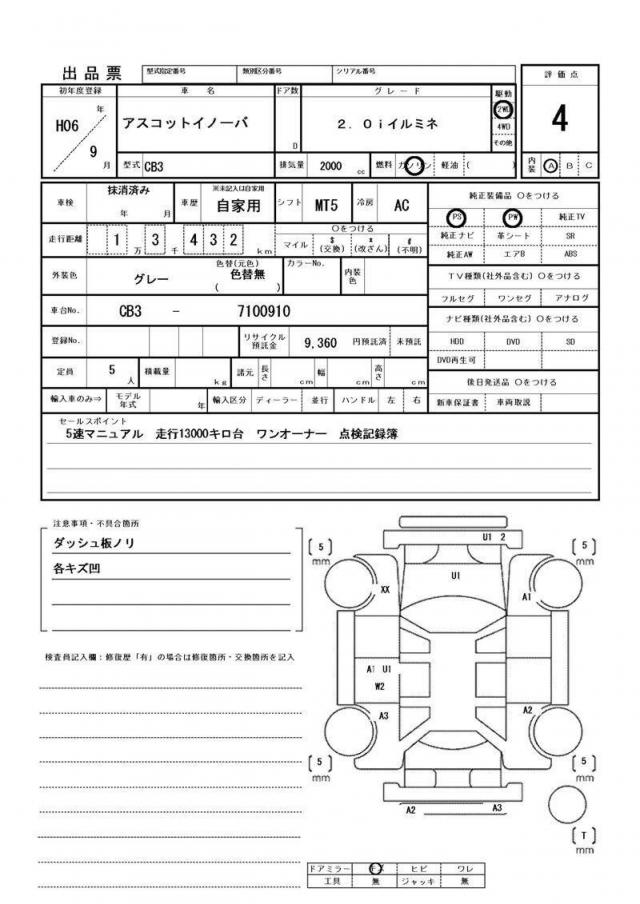 出品票 型式指定番号 類別区分番号 シリアル番号
評価点
初年度登録 車名 ドア数 グレード 駆動
H06 年 アスコットイノーバ D 2.0iイルミネ 2WD 4
9 月 4WD
その他
型式 CB3 排気量 2000 cc 燃料 ガソリン 軽油 ( ) 内装 A B C
車検 抹消済み 年 月 車歴 ※未記入は自家用 自家用 シフト MT5 冷房 AC
純正装備品 ○をつける
PS PW 純正TV
走行距離 1 万 3 千 4 3 2 km ○をつける
マイル $ (交換) * (改ざん) # (不明)
純正ナビ 革シート SR
純正AW エアB ABS
外装色 グレー 色替(元色) 色替無 ( ) カラーNo. 内装色
TV種類(社外品含む) ○をつける
フルセグ ワンセグ アナログ
車台No. CB3 - 7100910
ナビ種類(社外品含む) ○をつける
登録No. リサイクル預託金 9,360 円預託済 未預託
HDD DVD SD
DVD再生可
定員 5 人 積載量 kg 諸元 長さ cm 幅 cm 高さ cm
後日発送品 ○をつける
輸入車のみ⇒ モデル年式 年 輸入区分 ディーラー 並行 ハンドル 左 右
新車保証書 車両取説
セールスポイント
5速マニュアル 走行13000キロ台 ワンオーナー 点検記録簿
注意事項・不具合箇所
ダッシュ板ノリ
各キズ凹
検査員記入欄:修復歴「有」の場合は修復箇所・交換箇所を記入
U1 2
[5] mm
[5] mm
U1
XX
A1
A1 U1
W2
A3
A2
[5] mm
[5] mm
A2
A3
[T] mm
ドアミラー キズ ヒビ ワレ
工具 無 ジャッキ 無